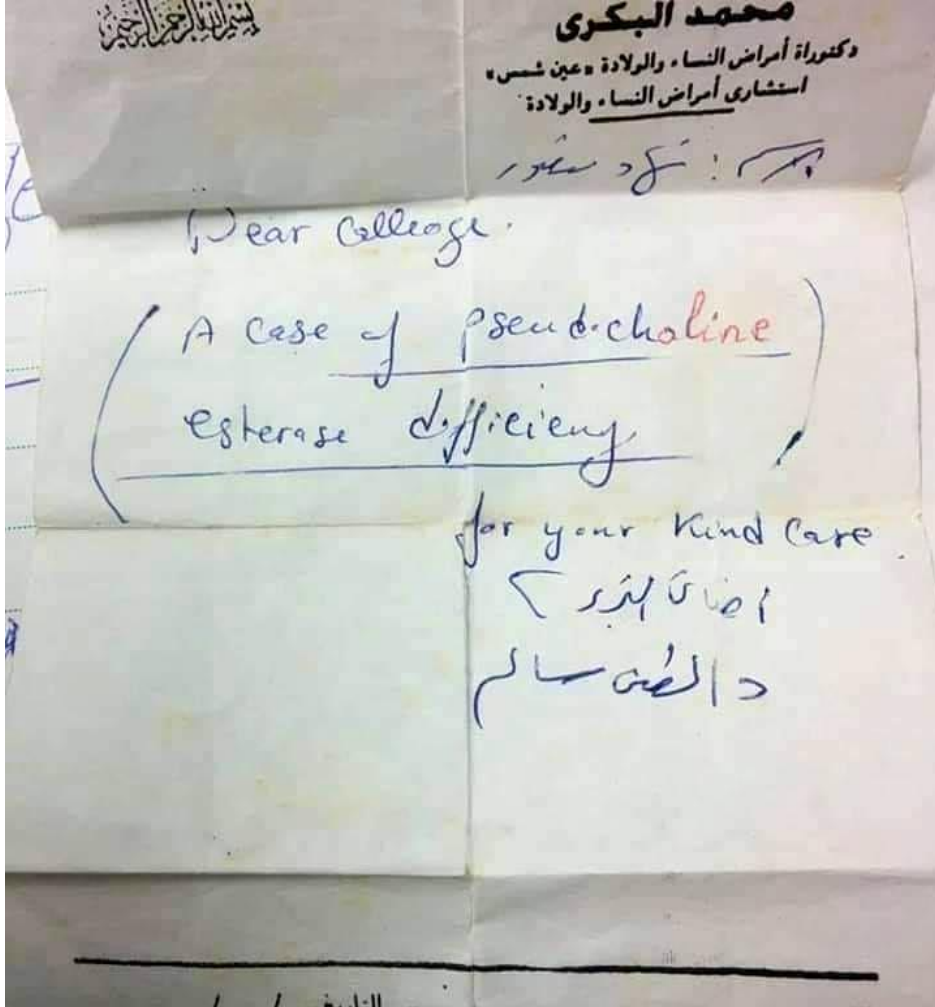 بسم الله الرحمن الرحيم
محمد البكرى
دكتوراة أمراض النساء والولادة «عين شمس»
استشارى أمراض النساء والولادة
Dear Colleage.
(A Case of pseudocholine
esterase difficiency)
for your Kind Care.
د
سالم
التاريخ / /